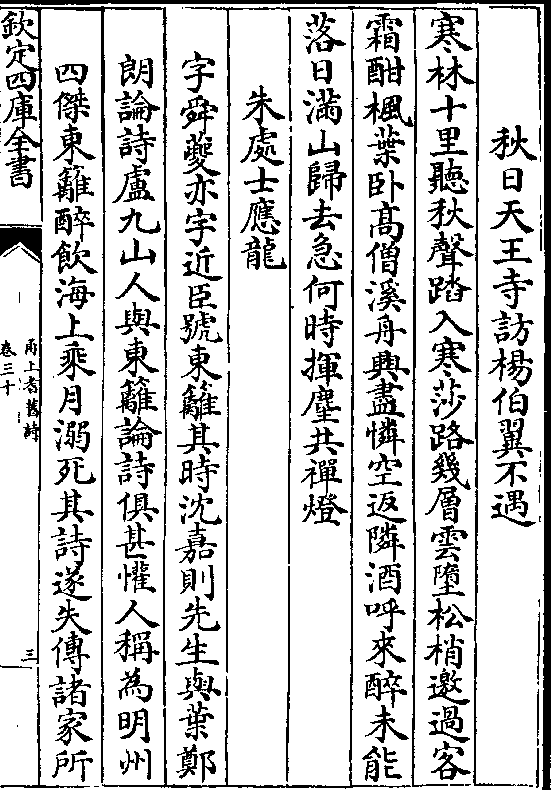 秋日天王寺訪楊伯翼不遇
寒林十里聽秋聲踏入寒莎路幾層雲墮松梢邀過客
霜酣楓葉卧髙僧溪舟興盡憐空返隣酒呼來醉未能
落日滿山歸去急何時揮麈共禪燈
朱處士應龍
字舜夔亦字近臣號東籬其時沈嘉則先生與葉鄭
朗論詩盧九山人與東籬論詩俱甚懽人稱為明州
四傑東籬醉飲海上乘月溺死其詩遂失傳諸家所
欽定四庫全書
甬上耆舊詩
卷三十
三